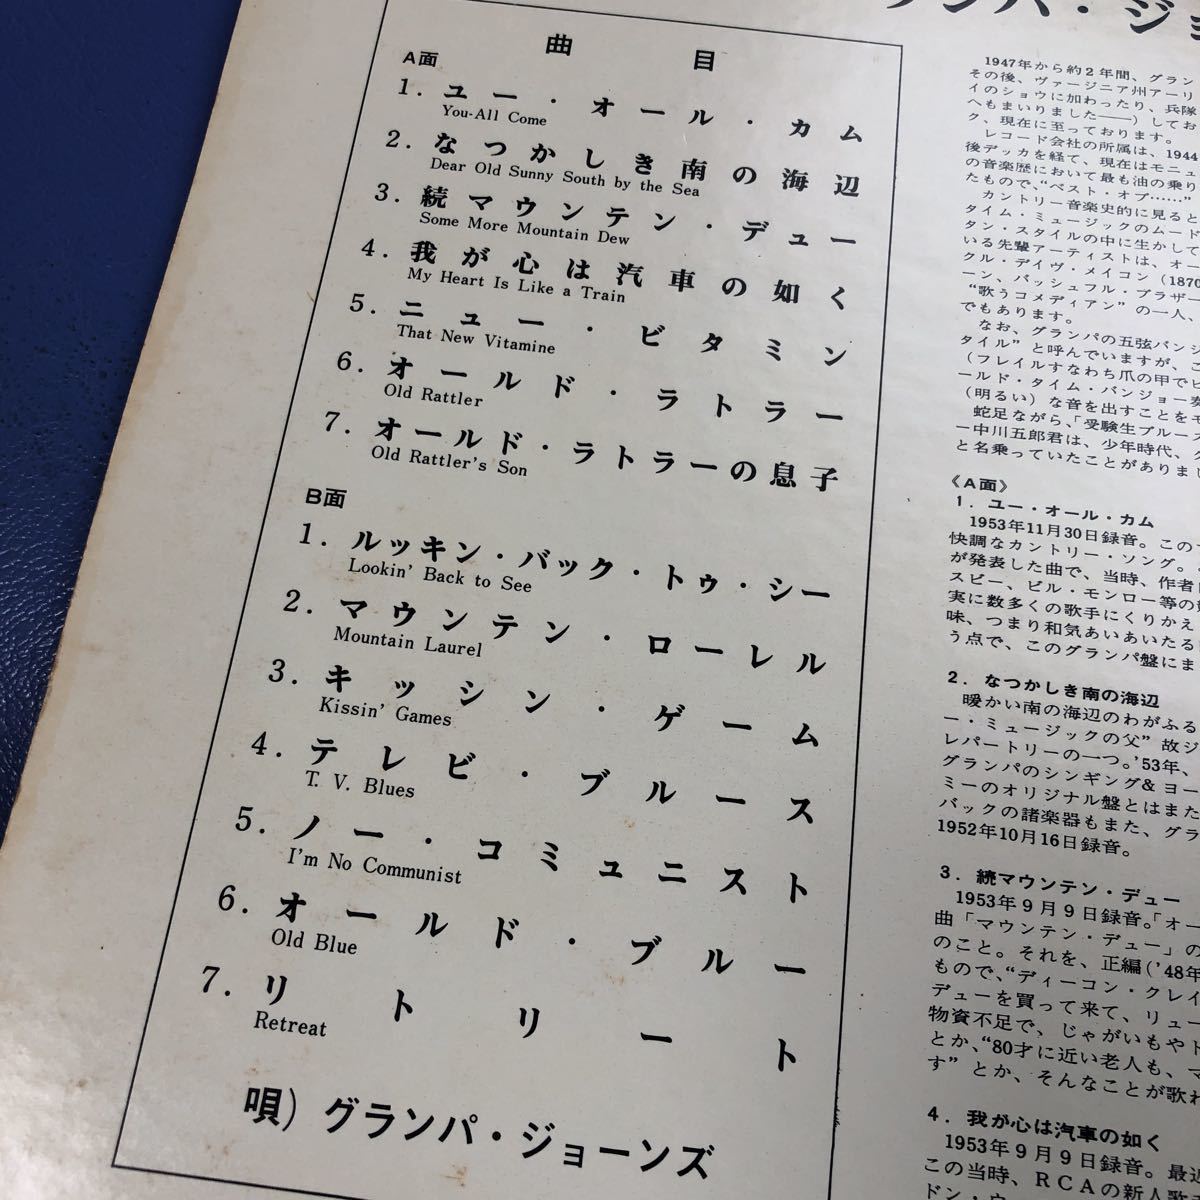 ランパ・ジョ
曲目
A面
1. ユー・オール・カム
You-All Come
2. なつかしき南の海辺
Dear Old Sunny South by the Sea
3. 続マウンテン・デュー
Some More Mountain Dew
4. 我が心は汽車の如く
My Heart Is Like a Train
5. ニュー・ビタミン
That New Vitamine
6. オールド・ラトラー
Old Rattler
7. オールド・ラトラーの息子
Old Rattler's Son
B面
1. ルッキン・バック・トゥ・シー
Lookin' Back to See
2. マウンテン・ローレル
Mountain Laurel
3. キッシン・ゲーム
Kissin' Games
4. テレビ・ブルース
T. V. Blues
5. ノー・コミュニスト
I'm No Communist
6. オールド・ブルー
Old Blue
7. リトリート
Retreat
唄) グランパ・ジョーンズ
1947年から約2年間、グラン
その後、ヴァージニア州アーリ
イのショウに加わったり、兵隊
へもまいりました——) してお
ク、現在に至っております。
レコード会社の所属は、1944
後デッカを経て、現在はモニュ
の音楽歴において最も油の乗り
たもので、“ベスト・オブ……”
カントリー音楽史的に見ると
タイム・ミュージックのムード
タン・スタイルの中に生かして
いる先輩アーティストは、オー
クル・デイヴ・メイコン (1870
ーン、バッシュフル・ブラザー
“歌うコメディアン” の一人、
でもあります。
なお、グランパの五弦バンジ
タイル” と呼んでいますが、こ
(フレイルすなわち爪の甲でピ
ールド・タイム・バンジョー奏
(明るい) な音を出すことをモ
蛇足ながら、「受験生ブルー
ー中川五郎君は、少年時代、グ
と名乗っていたことがありまし
《A面》
1. ユー・オール・カム
1953年11月30日録音。この
快調なカントリー・ソング。
が発表した曲で、当時、作者
スビー、ビル・モンロー等の
実に数多くの歌手にくりかえ
味、つまり和気あいあいたる
う点で、このグランパ盤にま
2. なつかしき南の海辺
暖かい南の海辺のわがふる
ー・ミュージックの父” 故ジ
レパートリーの一つ。'53年、
グランパのシンギング& ヨー
ミーのオリジナル盤とはまた
バックの諸楽器もまた、グラ
1952年10月16日録音。
3. 続マウンテン・デュー
1953年9月9日録音。「オー
曲「マウンテン・デュー」の
のこと。それを、正編 ('48年
もので、“ディーコン・クレイ
デューを買って来て、リュー
物資不足で、じゃがいもやト
とか、“80才に近い老人も、マ
す” とか、そんなことが歌わ
4. 我が心は汽車の如く
1953年9月9日録音。最近
この当時、RCAの新人歌手
ドン・ウ